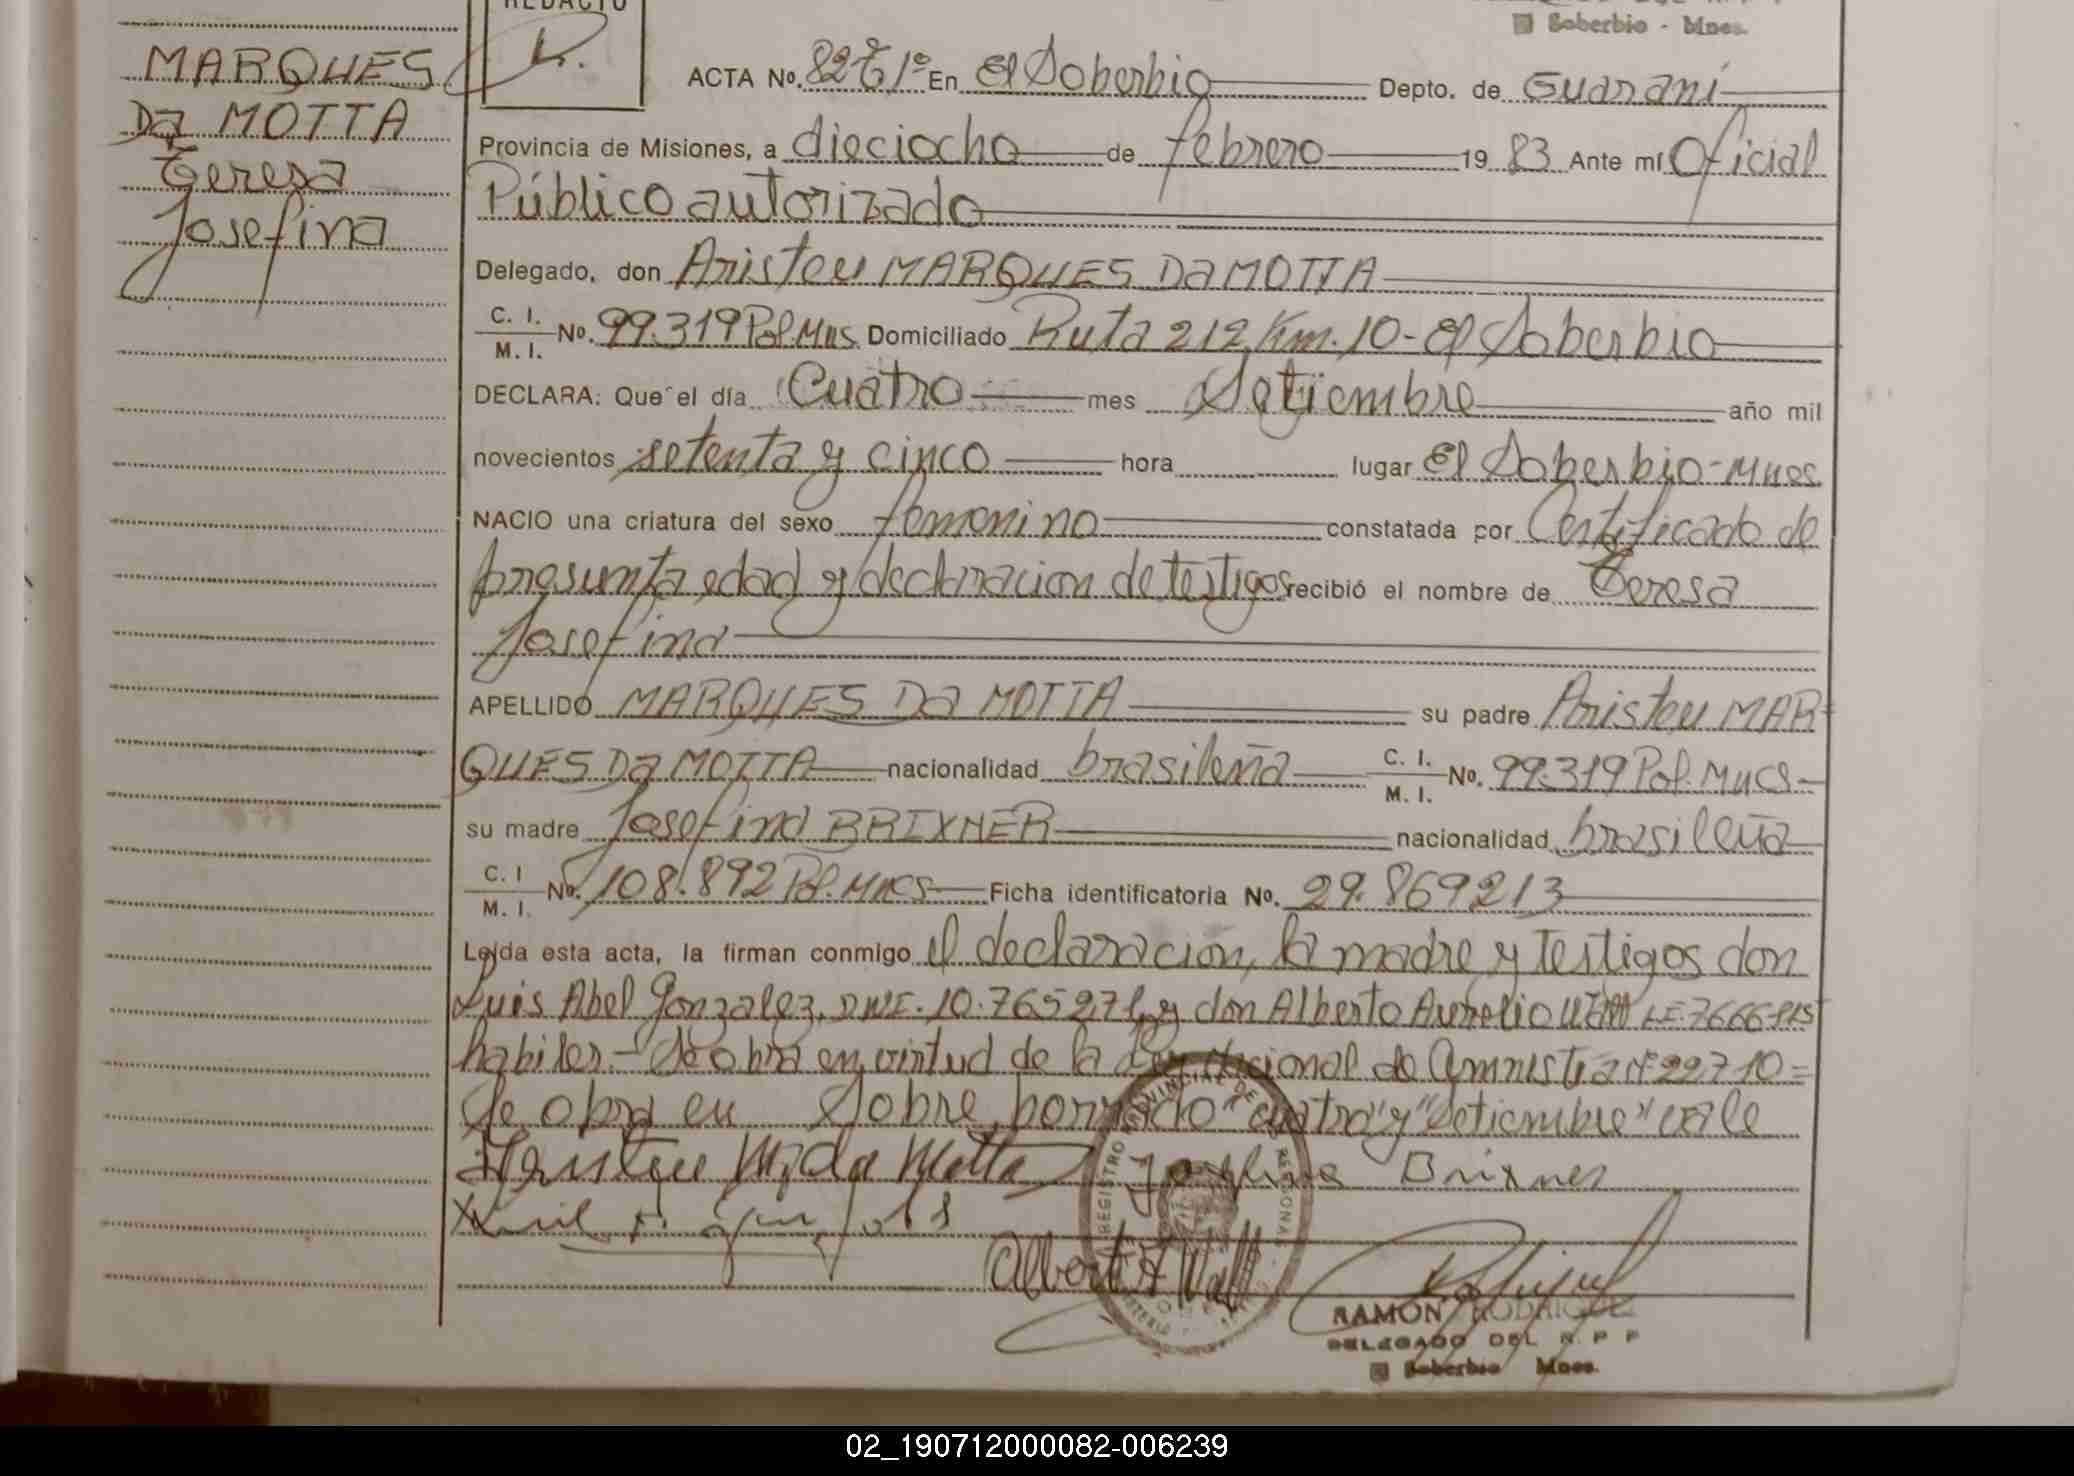 REDACTÓ
El Soberbio - Mnes.
MARQUES
Da MOTTA
Teresa
Josefina
ACTA No. 82 Tº 1º En El Soberbio Depto. de Guaraní
Provincia de Misiones, a dieciocho de febrero 19 83 Ante mí Oficial
Público autorizado
Delegado, don Aristeu MARQUES Da MOTTA
C. I.
M. I. No. 99.319 Pol. Mnes. Domiciliado Ruta 212 Km. 10 - El Soberbio
DECLARA: Que el día Cuatro mes Setiembre año mil
novecientos setenta y cinco hora lugar El Soberbio - Mnes.
NACIO una criatura del sexo femenino constatada por Certificado de
presunta edad y declaracion de testigos recibió el nombre de Teresa
Josefina
APELLIDO MARQUES Da MOTTA su padre Aristeu MAR-
QUES Da MOTTA nacionalidad brasileña C. I.
M. I. No. 99.319 Pol. Mnes -
su madre Josefina BRIXNER nacionalidad brasileña
C. I
M. I. No. 108.892 Pol. Mnes Ficha identificatoria No. 29.869213
Leída esta acta, la firman conmigo el declaracion, la madre y testigos don
Luis Abel Gonzalez, DNI. 10.765271, y don Alberto Aurelio LE. 7666
habiles.- Se obra en virtud de la Ley Nacional de Amnistia Nº 22710 =
Se obra en Sobre borrado "cuatro" y "Setiembre" vale
Aristeu M. da Motta Josefina Brixner
Albert A Wall
REGISTRO PROVINCIAL DE PERSONAS
RAMON RODRIGUEZ
DELEGADO DEL R. P. P
El Soberbio Mnes.
02_190712000082-006239